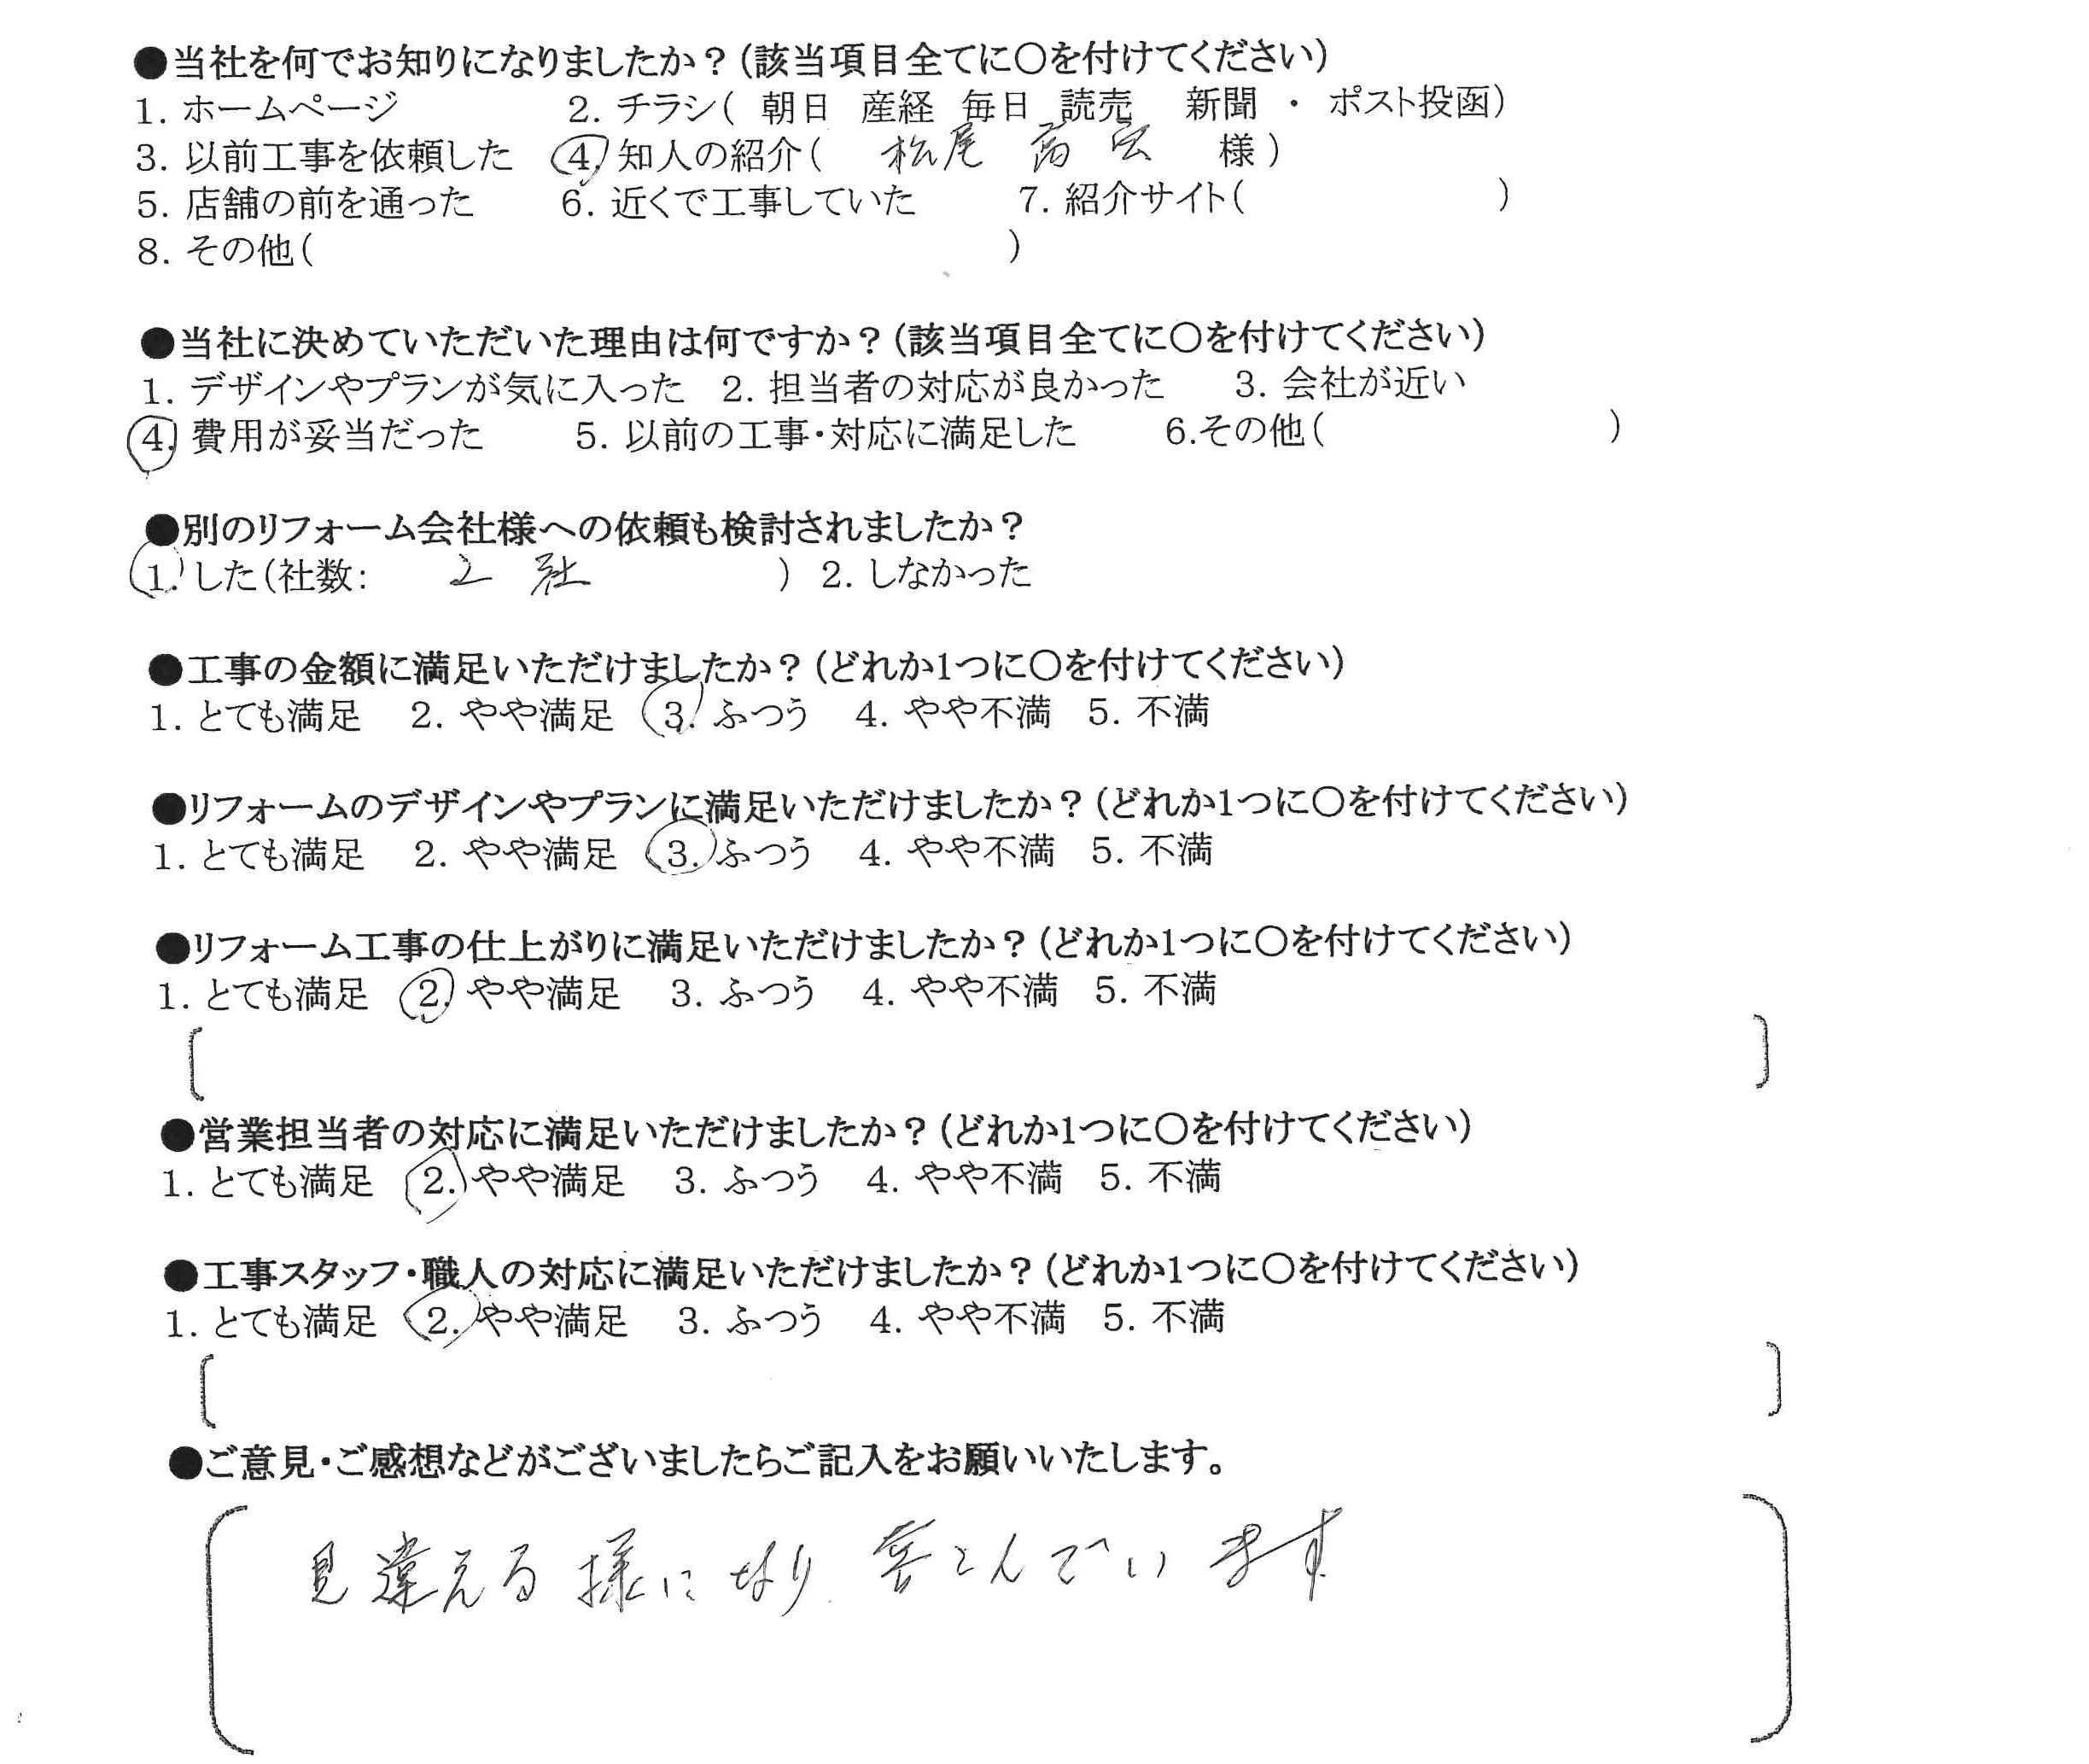 ●当社を何でお知りになりましたか？(該当項目全てに○を付けてください)
1. ホームページ 2. チラシ( 朝日 産経 毎日 読売 新聞 ・ ポスト投函)
3. 以前工事を依頼した 4. 知人の紹介( 松尾 高宏 様)
5. 店舗の前を通った 6. 近くで工事していた 7. 紹介サイト( )
8. その他( )
●当社に決めていただいた理由は何ですか？(該当項目全てに○を付けてください)
1. デザインやプランが気に入った 2. 担当者の対応が良かった 3. 会社が近い
4. 費用が妥当だった 5. 以前の工事・対応に満足した 6.その他( )
●別のリフォーム会社様への依頼も検討されましたか？
1. した(社数: 2 社 ) 2. しなかった
●工事の金額に満足いただけましたか？(どれか1つに○を付けてください)
1. とても満足 2. やや満足 3. ふつう 4. やや不満 5. 不満
●リフォームのデザインやプランに満足いただけましたか？(どれか1つに○を付けてください)
1. とても満足 2. やや満足 3. ふつう 4. やや不満 5. 不満
●リフォーム工事の仕上がりに満足いただけましたか？(どれか1つに○を付けてください)
1. とても満足 2. やや満足 3. ふつう 4. やや不満 5. 不満
●営業担当者の対応に満足いただけましたか？(どれか1つに○を付けてください)
1. とても満足 2. やや満足 3. ふつう 4. やや不満 5. 不満
●工事スタッフ・職人の対応に満足いただけましたか？(どれか1つに○を付けてください)
1. とても満足 2. やや満足 3. ふつう 4. やや不満 5. 不満
●ご意見・ご感想などがございましたらご記入をお願いいたします。
見違える様になり 喜こんでいます